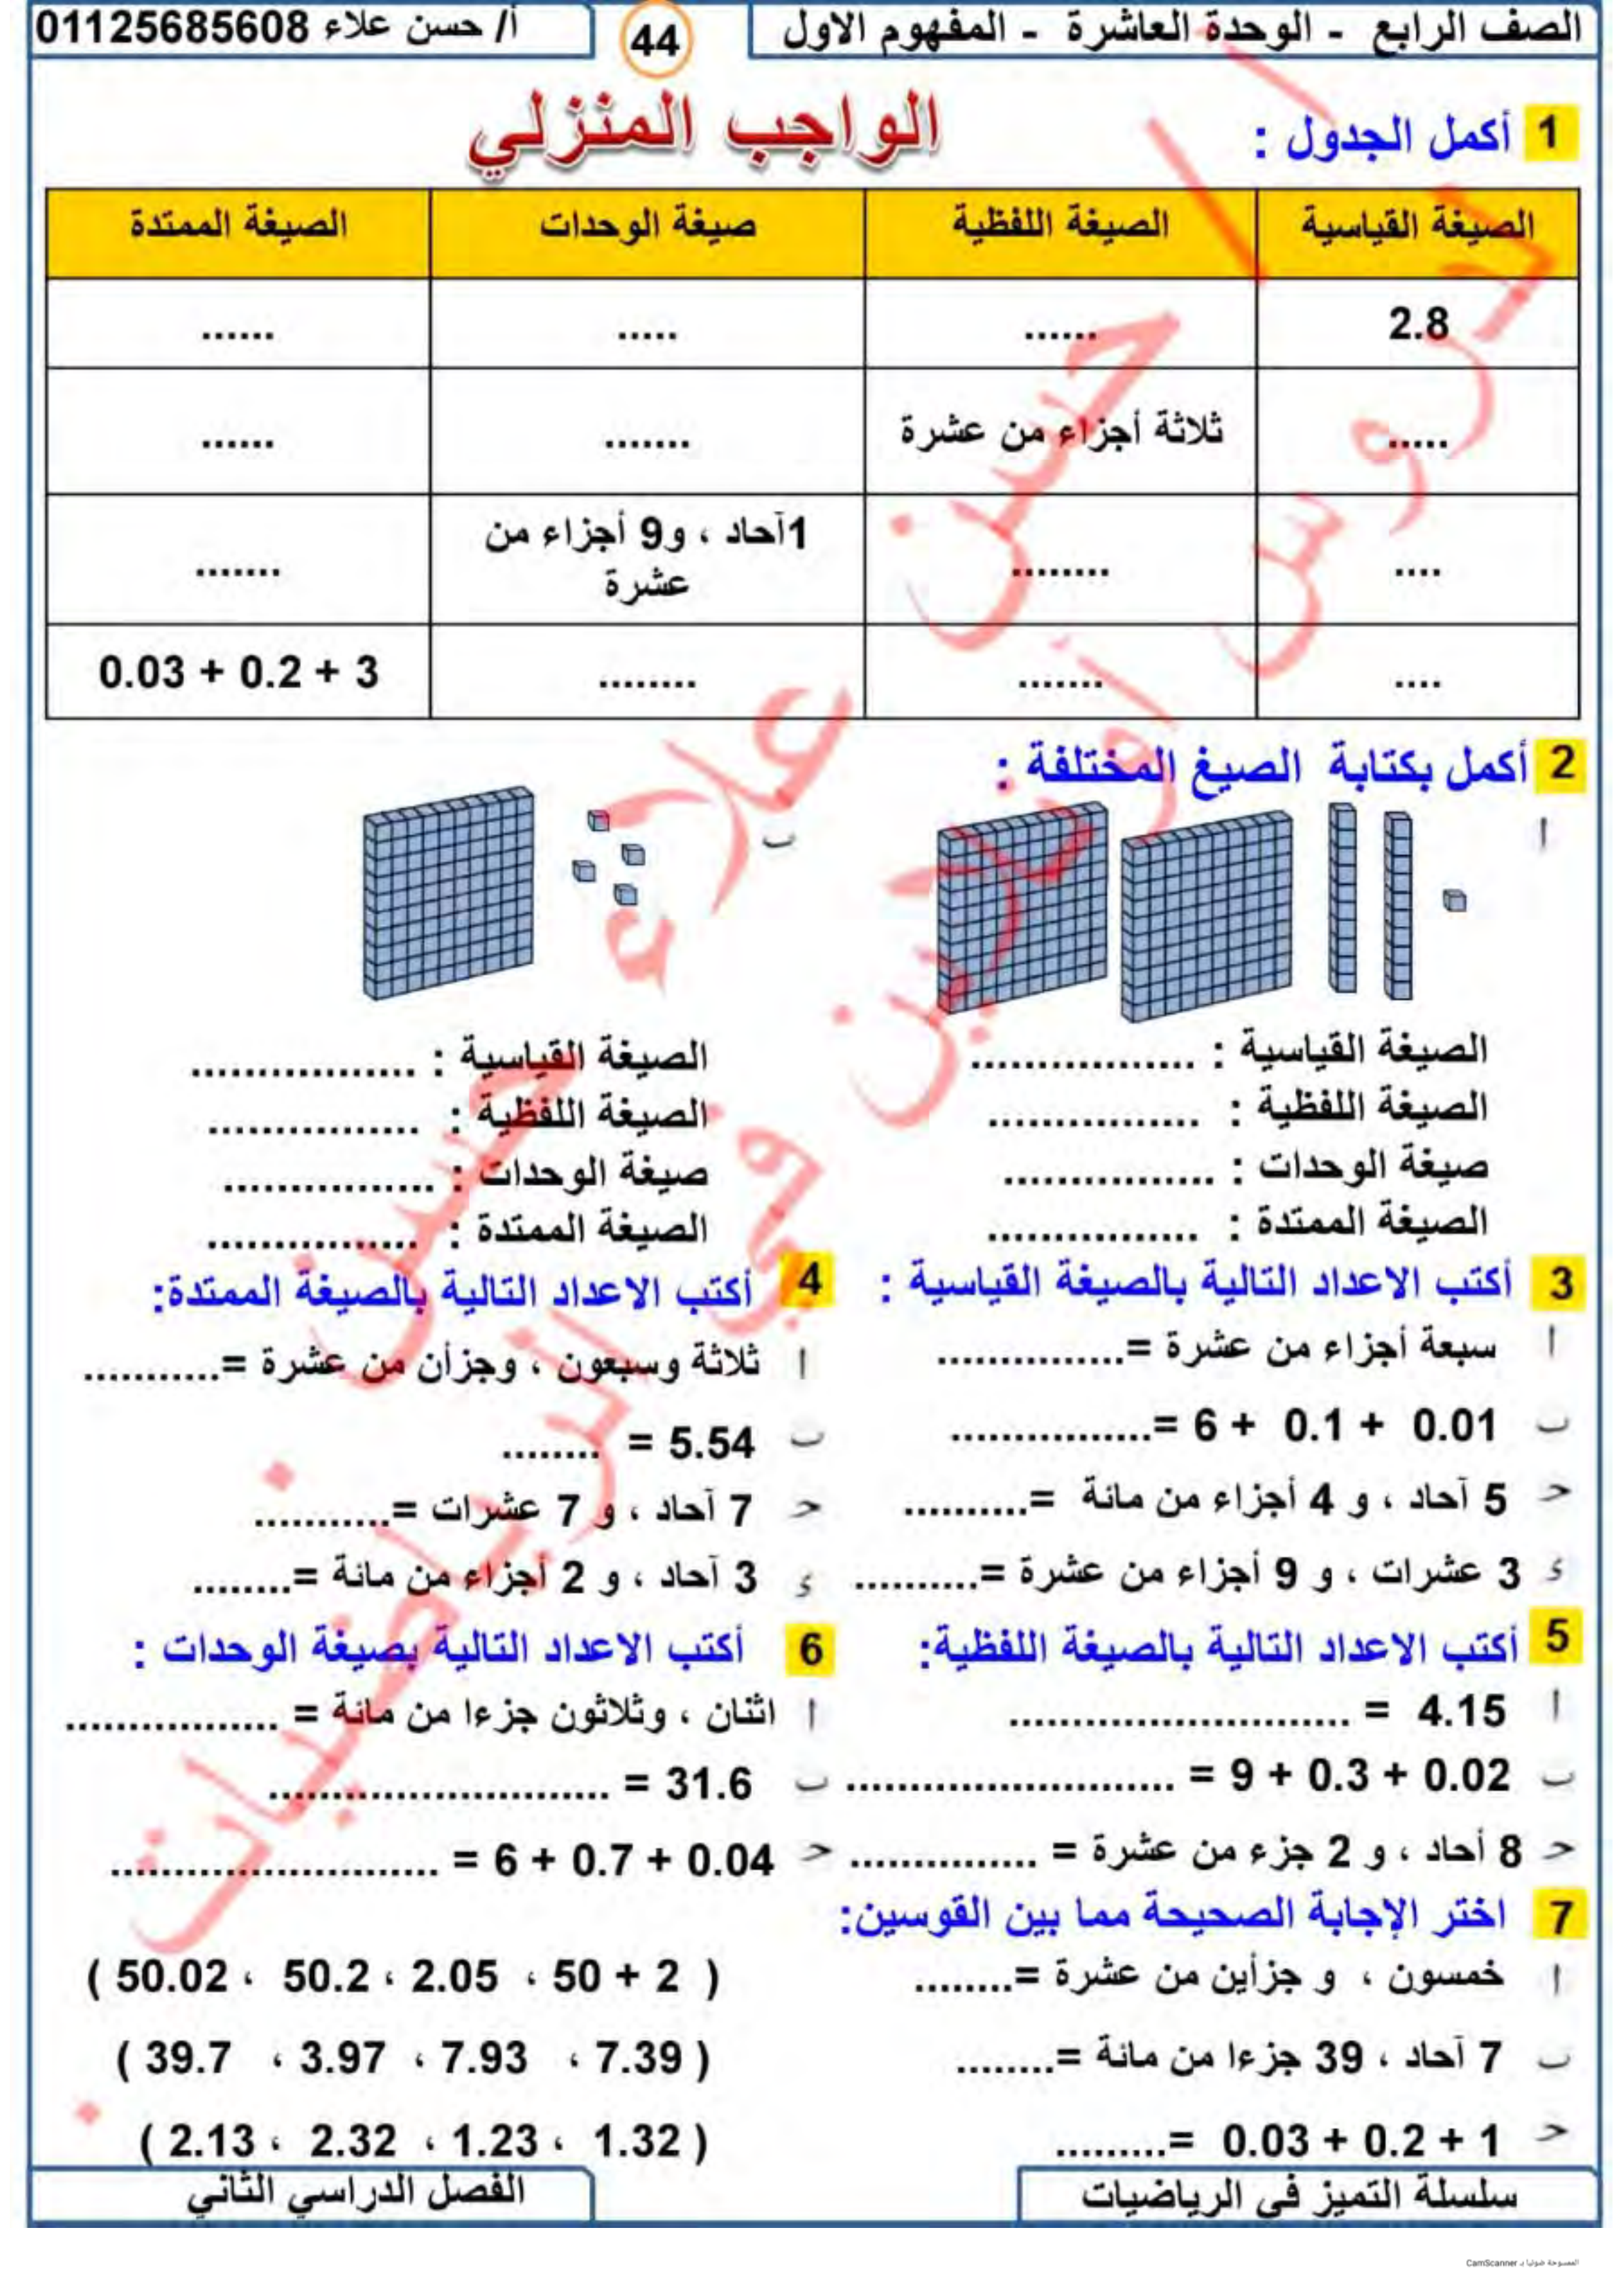 الصف الرابع - الوحدة العاشرة - المفهوم الاول
44
أ/ حسن علاء 01125685608
الواجب المنزلي
1 أكمل الجدول :
الصيغة القياسية الصيغة اللفظية صيغة الوحدات الصيغة الممتدة
2.8 ...... ..... ......
..... ثلاثة أجزاء من عشرة ....... ......
.... ........ 1آحاد ، و9 أجزاء من عشرة .......
.... ....... ........ 3 + 0.2 + 0.03
2 أكمل بكتابة الصيغ المختلفة :
أ
الصيغة القياسية : .................
الصيغة اللفظية : ................
صيغة الوحدات : ................
الصيغة الممتدة : ................
ب
الصيغة القياسية : .................
الصيغة اللفظية : ................
صيغة الوحدات : ................
الصيغة الممتدة : ................
3 أكتب الاعداد التالية بالصيغة القياسية :
أ سبعة أجزاء من عشرة =...............
ب 6 + 0.1 + 0.01 =................
حـ 5 آحاد ، و 4 أجزاء من مائة =..........
ء 3 عشرات ، و 9 أجزاء من عشرة =..........
4 أكتب الاعداد التالية بالصيغة الممتدة:
أ ثلاثة وسبعون ، وجزأن من عشرة =...........
ب 5.54 = ........
حـ 7 آحاد ، و 7 عشرات =...........
ء 3 آحاد ، و 2 أجزاء من مائة =........
5 أكتب الاعداد التالية بالصيغة اللفظية:
أ 4.15 = ...........................
ب 9 + 0.3 + 0.02 = ..........................
حـ 8 أحاد ، و 2 جزء من عشرة = ...............
6 أكتب الاعداد التالية بصيغة الوحدات :
أ اثنان ، وثلاثون جزءا من مائة = .................
ب 31.6 = ...........................
حـ 6 + 0.7 + 0.04 = ..........................
7 اختر الإجابة الصحيحة مما بين القوسين:
أ خمسون ، و جزأين من عشرة =........ ( 50 + 2 ، 2.05 ، 50.2 ، 50.02 )
ب 7 آحاد ، 39 جزءا من مائة =........ ( 7.39 ، 7.93 ، 3.97 ، 39.7 )
حـ 1 + 0.2 + 0.03 =......... ( 1.32 ، 1.23 ، 2.32 ، 2.13 )
سلسلة التميز في الرياضيات
الفصل الدراسي الثاني
أ / حسن علاء
دروس أونلاين في الرياضيات
حسن
الممسوحة ضوئيا بـ CamScanner